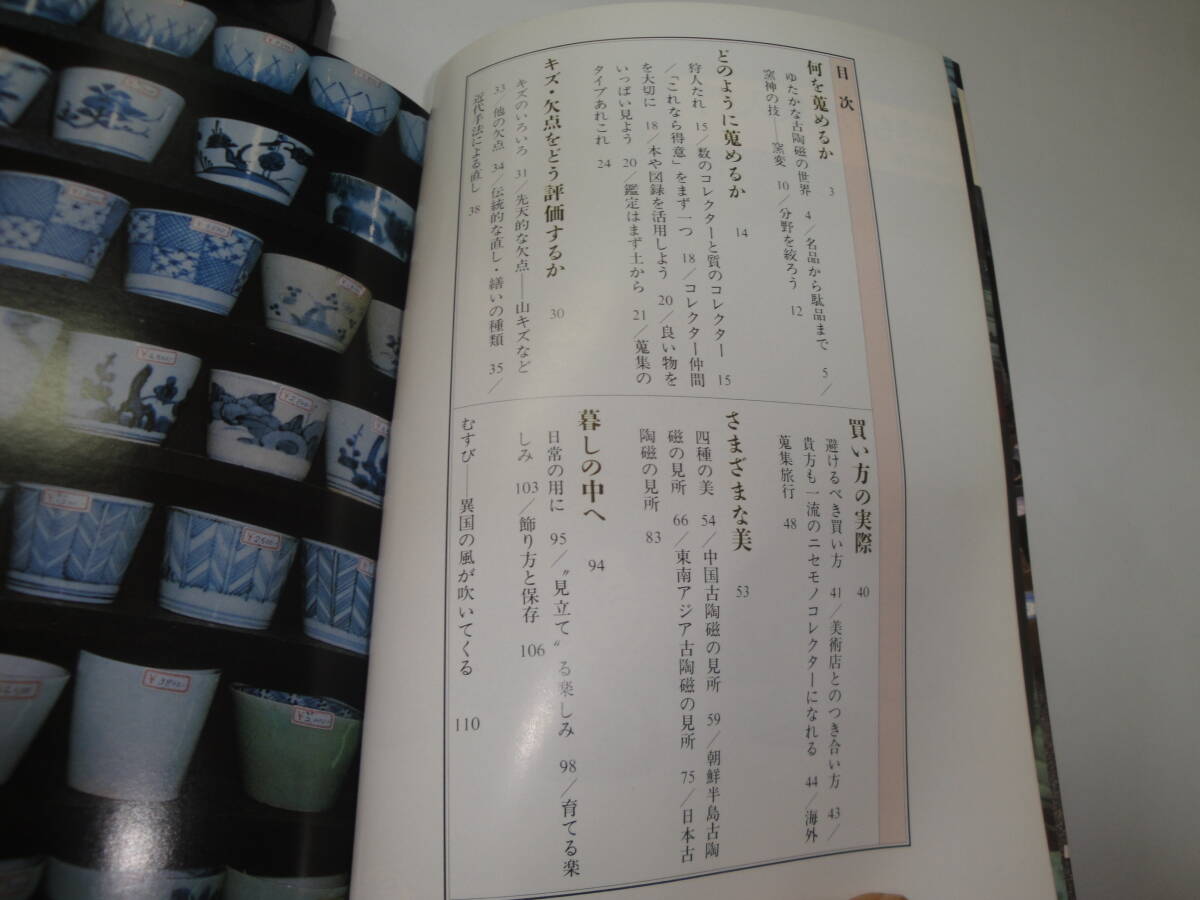 目次
何を蒐めるか 3
ゆたかな古陶磁の世界 4／名品から駄品まで 5／
窯神の技――窯変 10／分野を絞ろう 12
どのように蒐めるか 14
狩人たれ 15／数のコレクターと質のコレクター 15
／「これなら得意」をまず一つ 18／コレクター仲間
を大切に 18／本や図録を活用しよう 20／良い物を
いっぱい見よう 20／鑑定はまず土から 21／蒐集の
タイプあれこれ 24
キズ・欠点をどう評価するか 30
キズのいろいろ 31／先天的な欠点――山キズなど
33／他の欠点 34／伝統的な直し・繕いの種類 35／
近代手法による直し 38
買い方の実際 40
避けるべき買い方 41／美術店とのつき合い方 43／
貴方も一流のニセモノコレクターになれる 44／海外
蒐集旅行 48
さまざまな美 53
四種の美 54／中国古陶磁の見所 59／朝鮮半島古陶
磁の見所 66／東南アジア古陶磁の見所 75／日本古
陶磁の見所 83
暮しの中へ 94
日常の用に 95／〝見立て〟る楽しみ 98／育てる楽
しみ 103／飾り方と保存 106
むすび――異国の風が吹いてくる 110